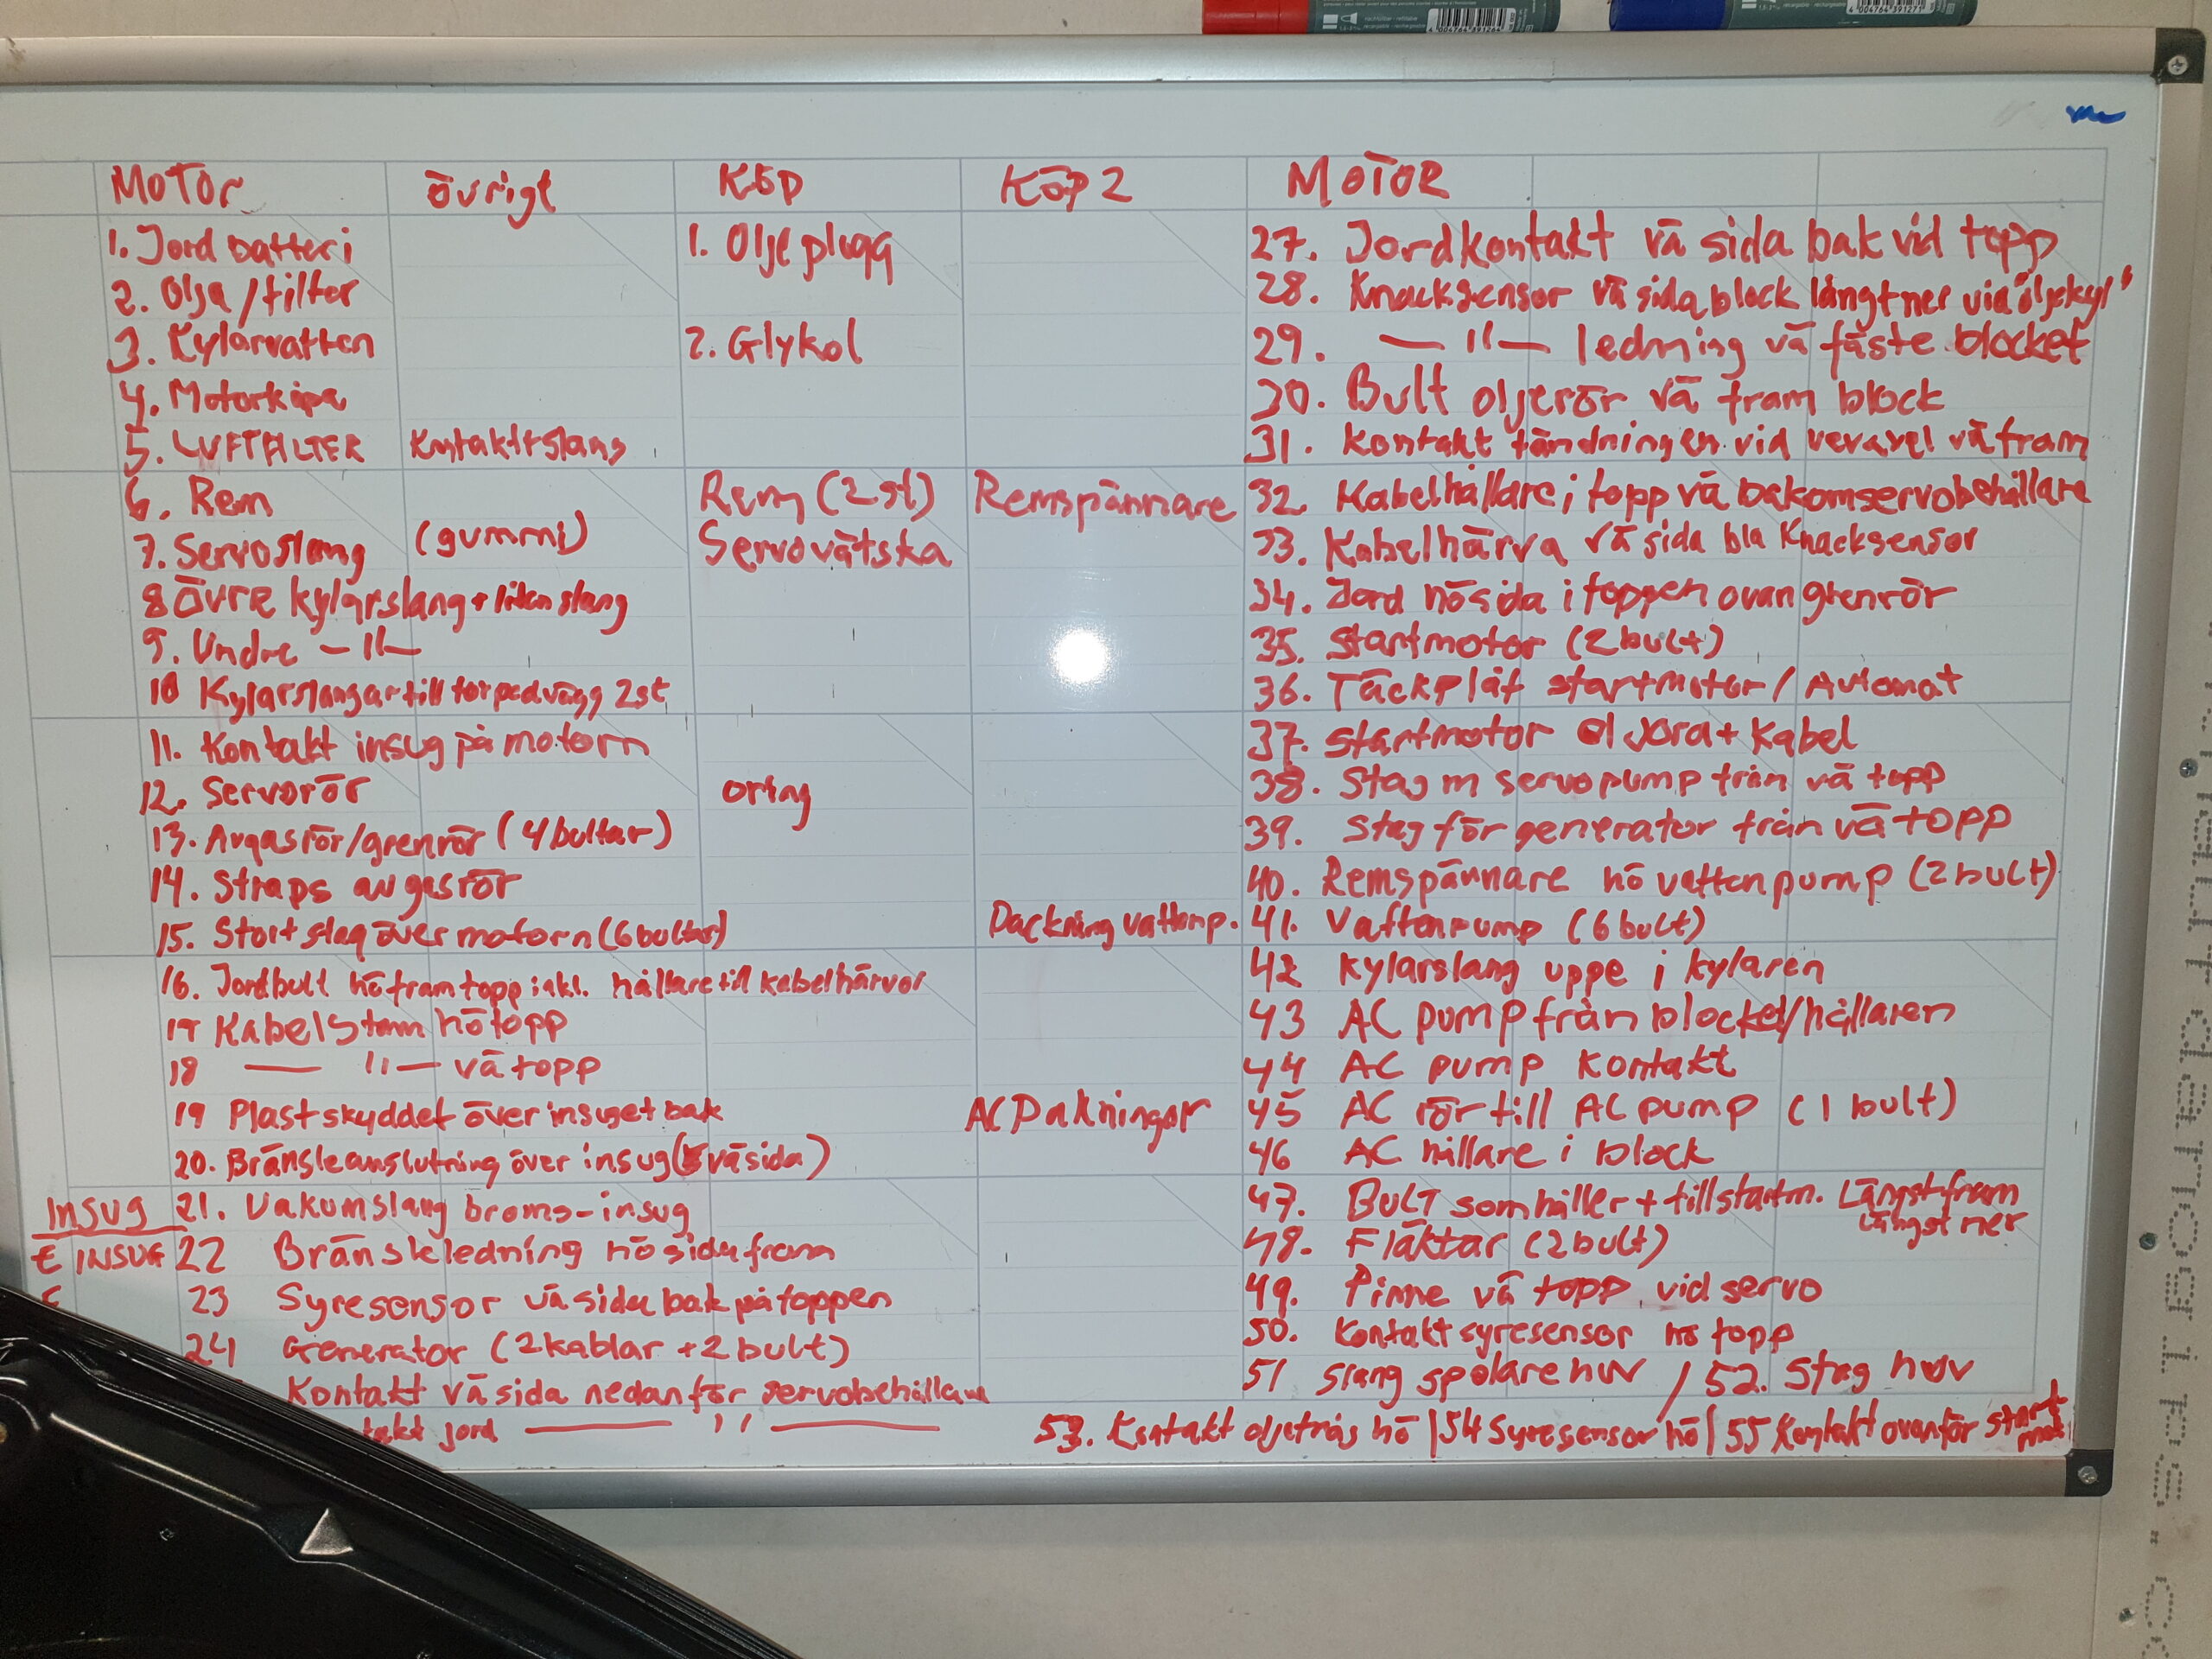 MOTOR övrigt KÖP KÖP 2 MOTOR
1. Jord batteri 1. Olje plugg 27. Jordkontakt vä sida bak vid topp
2. Olja/filter 28. Knacksensor vä sida block långt ner vid "oljekyl"
3. Kylarvatten 2. Glykol 29. — 11 — ledning vä fäste blocket
4. Motorkåpa 30. Bult oljerör vä fram block
5. LUFTFILTER Kontakt+slang 31. Kontakt tändningen vid vevaxel vä fram
6. Rem Rem (2 st) Remspännare 32. Kabelhållare i topp vä bakom servobehållare
7. Servoslang (gummi) Servovätska 33. Kabelhärva vä sida bla Knacksensor
8 ÖVRE kylarslang + liten slang 34. Jord hö sida i toppen ovan grenrör
9. Undre — 11 — 35. Startmotor (2 bult)
10 Kylarslangar till torpedvägg 2st 36. Täckplåt startmotor / Automat
11. Kontakt insug på motorn 37. Startmotor el Jord + Kabel
12. Servorör oring 38. Stag m servopump från vä topp
13. Avgasrör/grenrör (4 bultar) 39. Stag för generator från vä topp
14. Straps avgasrör 40. Remspännare hö vattenpump (2 bult)
15. Stort stag över motorn (6 bultar) Packning vattenp. 41. Vattenpump (6 bult)
16. Jordbult hö fram topp inkl. hållare till kabelhärvor 42 Kylarslang uppe i kylaren
17 Kabelstam hö topp 43 AC pump från blocket/hållaren
18 — 11 — vä topp 44 AC pump Kontakt
19 Plastskyddet över insuget bak AC Pakningar 45 AC rör till AC pump (1 bult)
20. Bränsleanslutning över insug (vä sida) 46 AC hållare i block
INSUG 21. Vakumslang broms-insug 47. BULT som håller + till startm. Längst fram längst ner
E INSUG 22 Bränsleledning hö sida fram 48. Fläktar (2 bult)
23 Syresensor vä sida bak på toppen 49. Pinne vä topp vid servo
24 Generator (2 kablar + 2 bult) 50. Kontakt syresensor hö topp
Kontakt vä sida nedanför servobehållare 51 slang spolare huv / 52. Stag huv
takt jord — 11 — 53. Kontakt oljetråg hö | 54 Syresensor hö | 55 Kontakt ovanför start mot